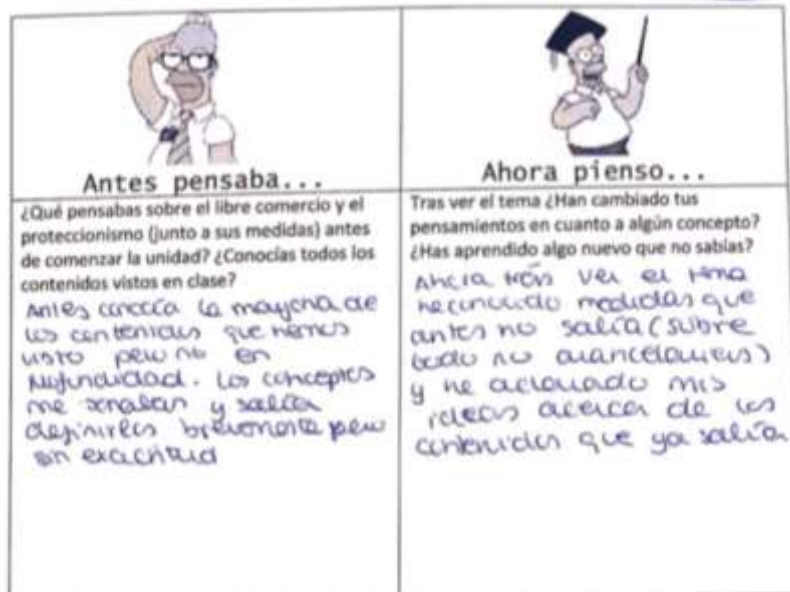 Antes pensaba...
¿Qué pensabas sobre el libre comercio y el
proteccionismo (junto a sus medidas) antes
de comenzar la unidad? ¿Conocías todos los
contenidos vistos en clase?
Antes conocía la mayoría de
los contenidos que hemos
visto pero no en
profundidad. Los conceptos
me sonaban y sabía
definirlos brevemente pero
sin exactitud
Ahora pienso...
Tras ver el tema ¿Han cambiado tus
pensamientos en cuanto a algún concepto?
¿Has aprendido algo nuevo que no sabías?
Ahora trás ver el tema
he conocido medidas que
antes no sabía (sobre
todo no arancelarias)
y he aclarado mis
ideas acerca de los
contenidos que ya sabía